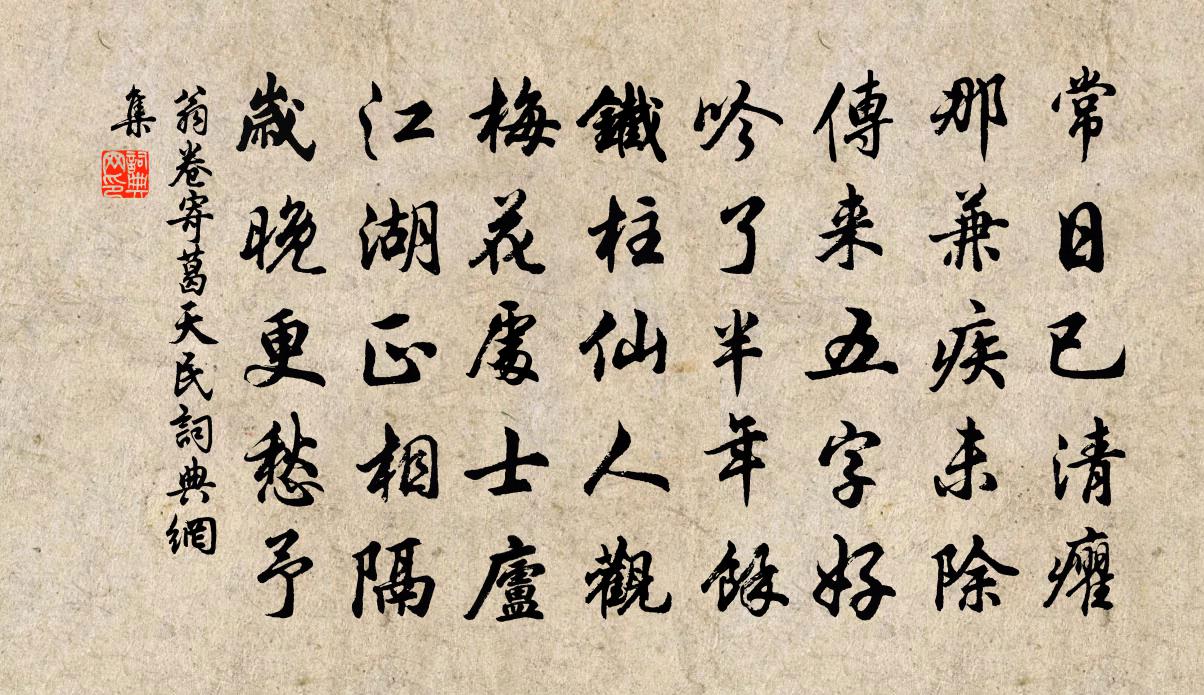 常日已清癯
那兼疾未除
傳来五字好
吟了半年餘
鐵柱仙人觀
梅花處士廬
江湖正相隔
歲晚更愁予
翁卷寄葛天民詞典網
集
詞典網印